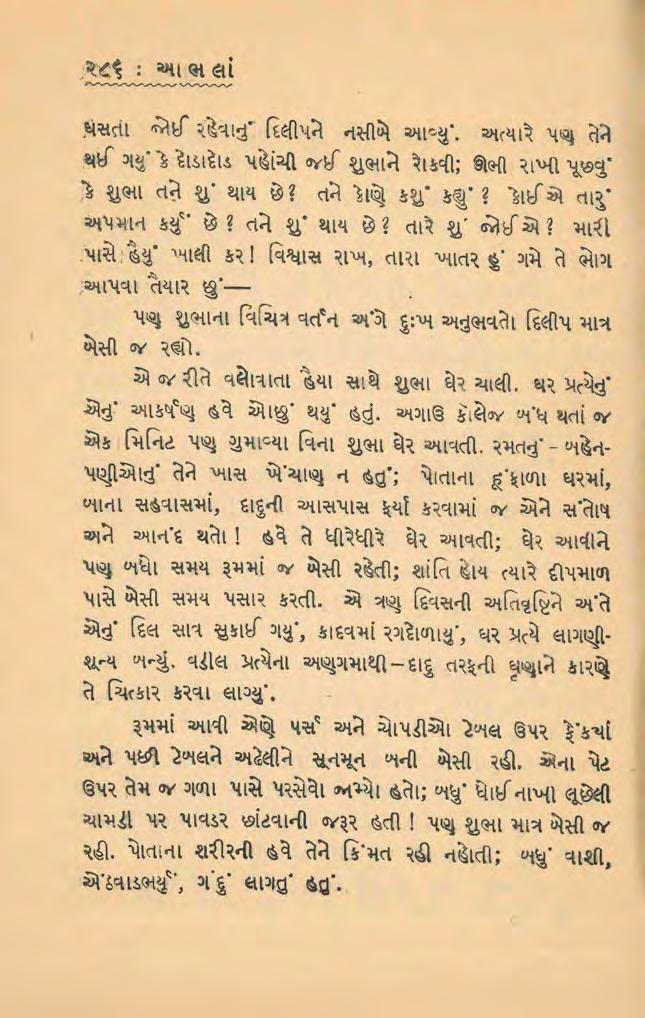 ૨૮૬ : આભલાં
ધસતા જોઈ રહેવાનું દિલીપને નસીબે આવ્યું. અત્યારે પણ તેને
થઈ ગયું કે દોડાદોડ પહોંચી જઈ શુભાને રોકવી; ઊભી રાખી પૂછવું
કે શુભા તને શું થાય છે? તને કોણે કશું કહ્યું? કોઈએ તારું
અપમાન કર્યું છે? તને શું થાય છે? તારે શું જોઈએ? મારી
પાસે હૈયું ખાલી કર! વિશ્વાસ રાખ, તારા ખાતર હું ગમે તે ભોગ
આપવા તૈયાર છું—
પણ શુભાના વિચિત્ર વર્તન અંગે દુઃખ અનુભવતો દિલીપ માત્ર
બેસી જ રહ્યો.
એ જ રીતે વલોવાતા હૈયા સાથે શુભા ઘેર ચાલી. ઘર પ્રત્યેનું
એનું આકર્ષણ હવે ઓછું થયું હતું. અગાઉ કૉલેજ બંધ થતાં જ
એક મિનિટ પણ ગુમાવ્યા વિના શુભા ઘેર આવતી. રમતનું – બહેન-
પણીઓનું તેને ખાસ ખેંચાણ ન હતું; પોતાના હૂંફાળા ઘરમાં,
બાના સહવાસમાં, દાદુની આસપાસ ફર્યા કરવામાં જ એને સંતોષ
અને આનંદ થતો! હવે તે ધીરેધીરે ઘેર આવતી; ઘેર આવીને
પણ બધો સમય રૂમમાં જ બેસી રહેતી; શાંતિ હોય ત્યારે દીપમાળ
પાસે બેસી સમય પસાર કરતી. એ ત્રણ દિવસની અતિવૃષ્ટિને અંતે
એનું દિલ સાવ સુકાઈ ગયું, કાદવમાં રગદોળાયું, ઘર પ્રત્યે લાગણી-
શૂન્ય બન્યું. વડીલ પ્રત્યેના અણગમાથી – દાદુ તરફની ઘૃણાને કારણે
તે ચિત્કાર કરવા લાગ્યું.
રૂમમાં આવી એણે પર્સ અને ચોપડીઓ ટેબલ ઉપર ફેંકયાં
અને પછી ટેબલને અઢેલીને સૂનમૂન બની બેસી રહી. એના પેટ
ઉપર તેમ જ ગળા પાસે પરસેવો જામ્યો હતો; બધું ધોઈ નાખી લૂછેલી
ચામડી પર પાવડર છાંટવાની જરૂર હતી! પણ શુભા માત્ર બેસી જ
રહી. પોતાના શરીરની હવે તેને કિંમત રહી નહોતી; બધું વાશી,
એંઠવાડભર્યું, ગંદું લાગતું હતું.